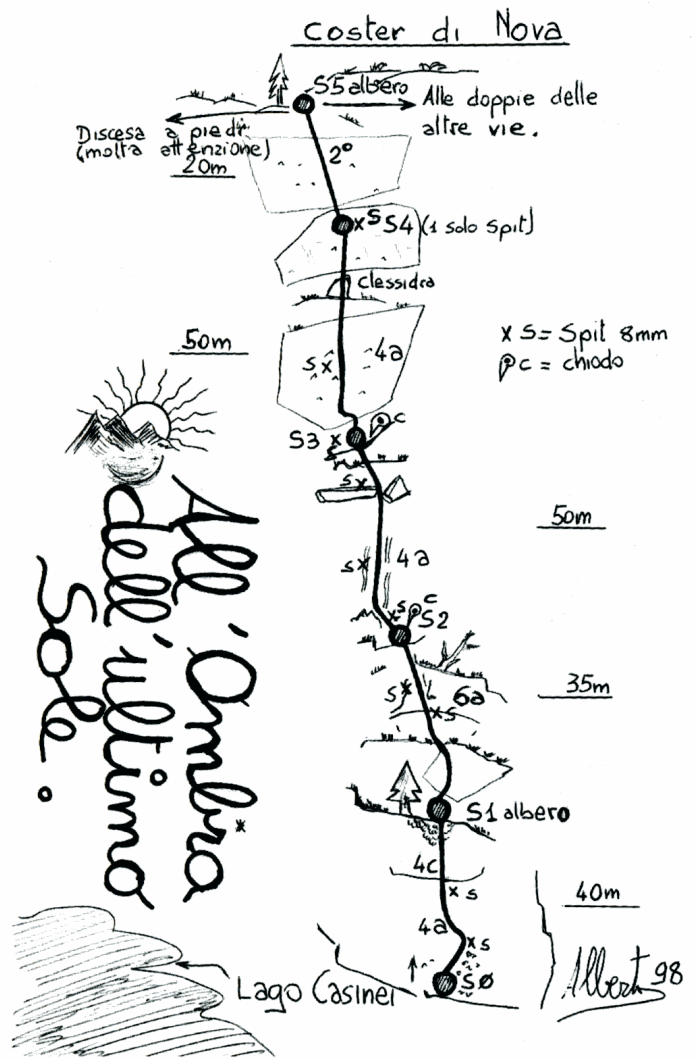 Coster di Nova
S5 albero
Alle doppie delle
altre vie.
Discesa a piedi
(molta attenzione)
20m
2°
x S S4 (1 solo spit)
clessidra
50m
4a
S x
x S = Spit 8mm
C = chiodo
C
S3 x
S x
50m
4a
S x
C
x S S2
35m
6a
S x
x S
S1 albero
4c
x S
40m
4a
x S
SØ
Lago Casinei
Albert 98
All'Ombra
dell'ultimo
Sole.